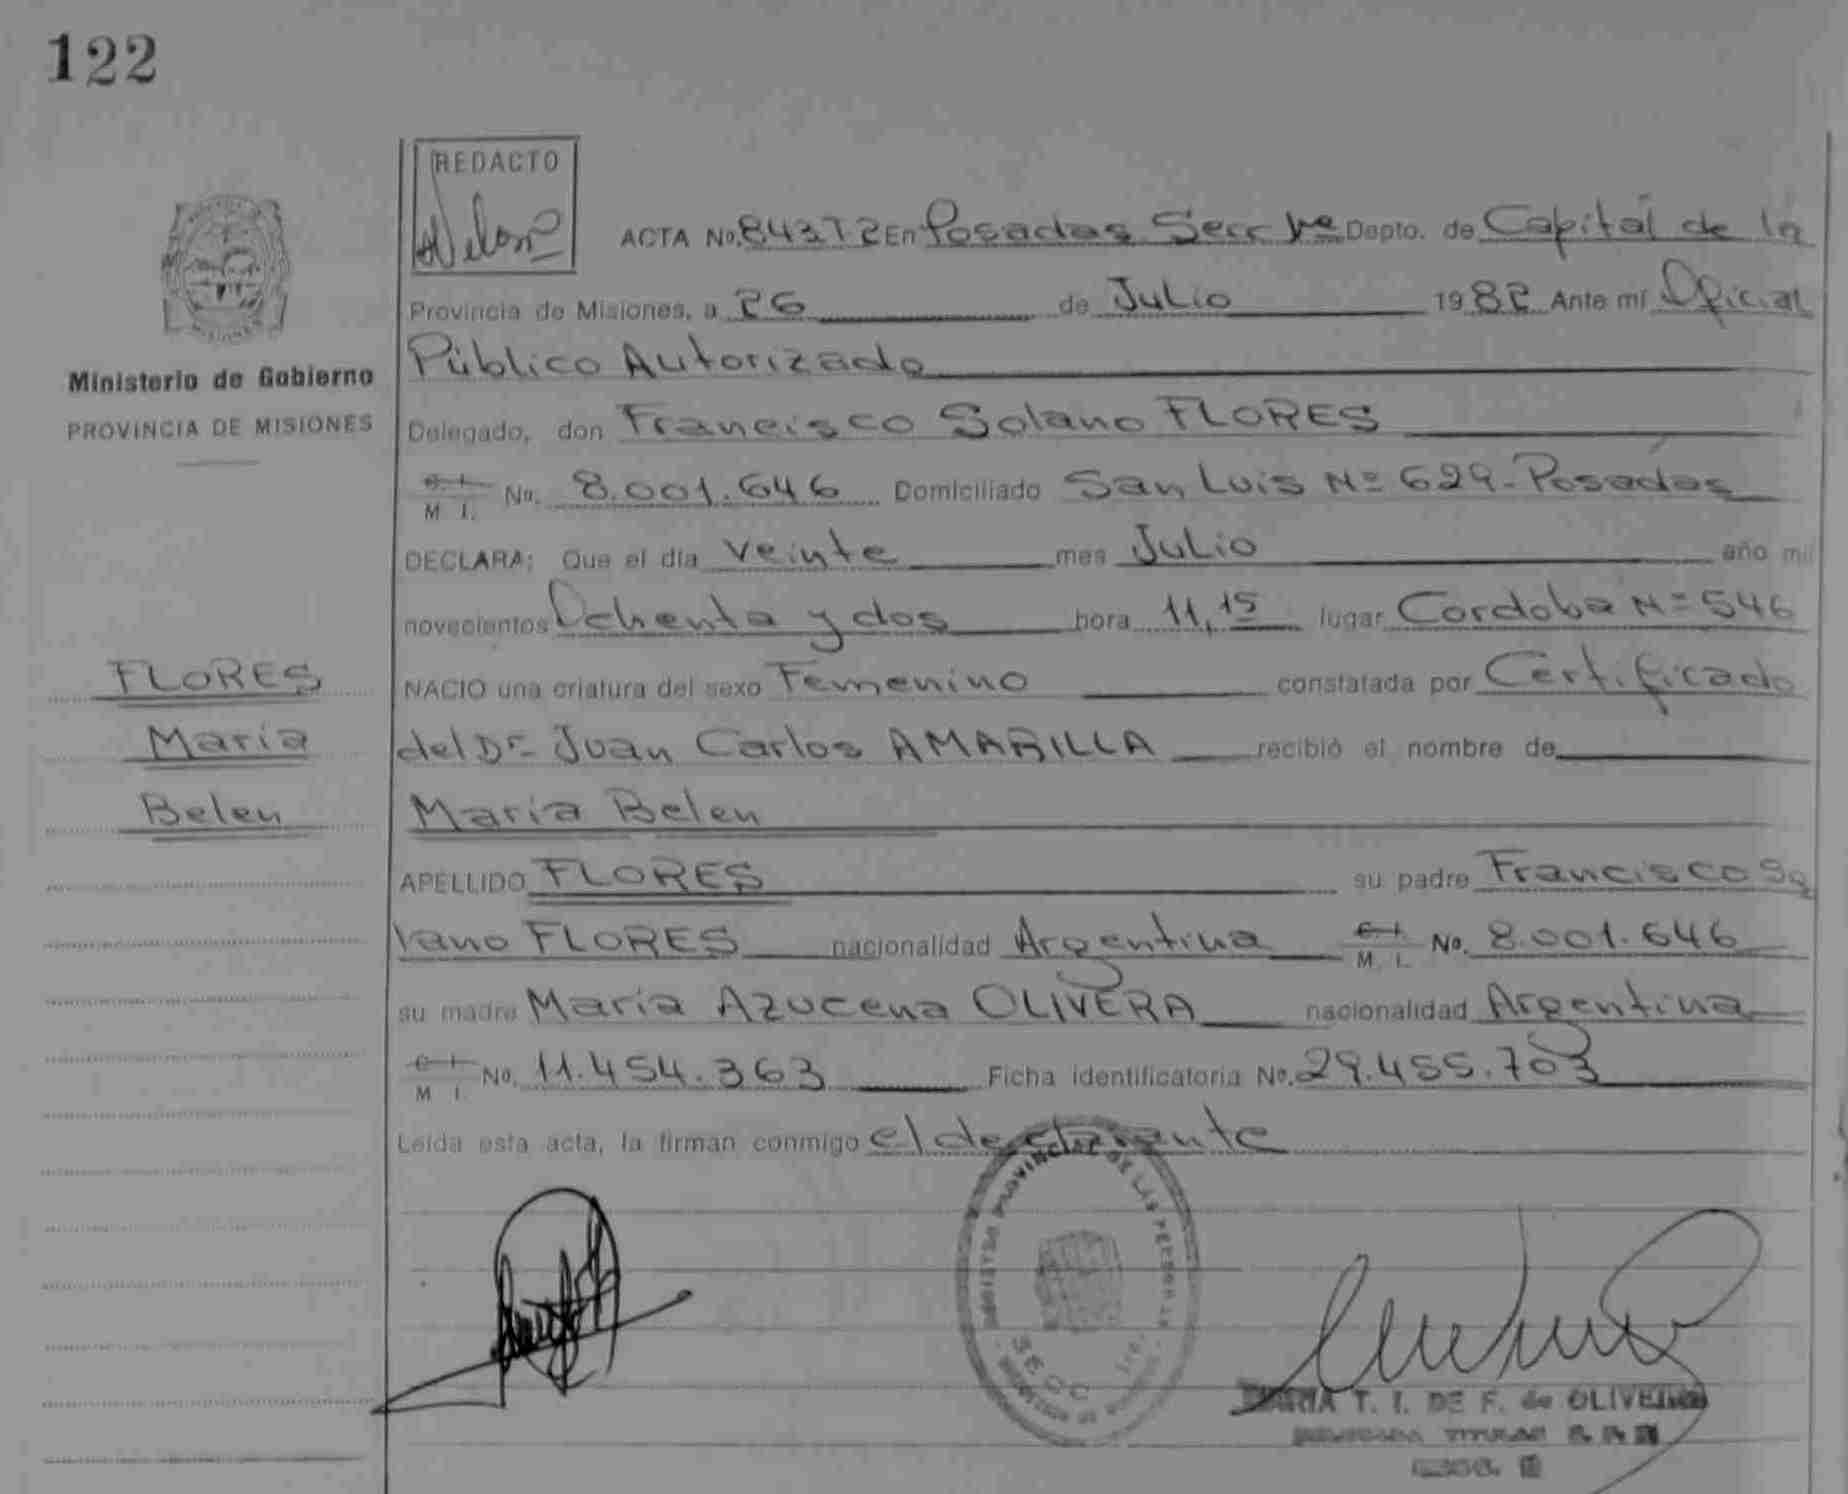 122
REDACTO
ACTA No. 84372 En Posadas Secc 1ra Depto. de Capital de la
Provincia de Misiones, a 26 de Julio 1982 Ante mí Oficial
Público Autorizado
Ministerio de Gobierno
PROVINCIA DE MISIONES
Delegado, don Francisco Solano FLORES
C. I. M. I. No. 8.001.646 Domiciliado San Luis Nº 629-Posadas
DECLARA: Que el día veinte mes Julio año mil
novecientos Ochenta y dos hora 11,15 lugar Cordoba Nº 546
FLORES
NACIO una criatura del sexo Femenino constatada por Certificado
María
del Dr Juan Carlos AMARILLA recibió el nombre de
Belen
María Belen
APELLIDO FLORES su padre Francisco So
lano FLORES nacionalidad Argentina C. I. M. I. No. 8.001.646
su madre María Azucena OLIVERA nacionalidad Argentina
C. I. M. I. No. 11.454.363 Ficha identificatoria No. 29.455.703
Leída esta acta, la firman conmigo el declarante
REGISTRO PROVINCIAL DE LAS PERSONAS
SECC 1ra.
MARIA T. I. DE F. de OLIVEIRA
TITULAR